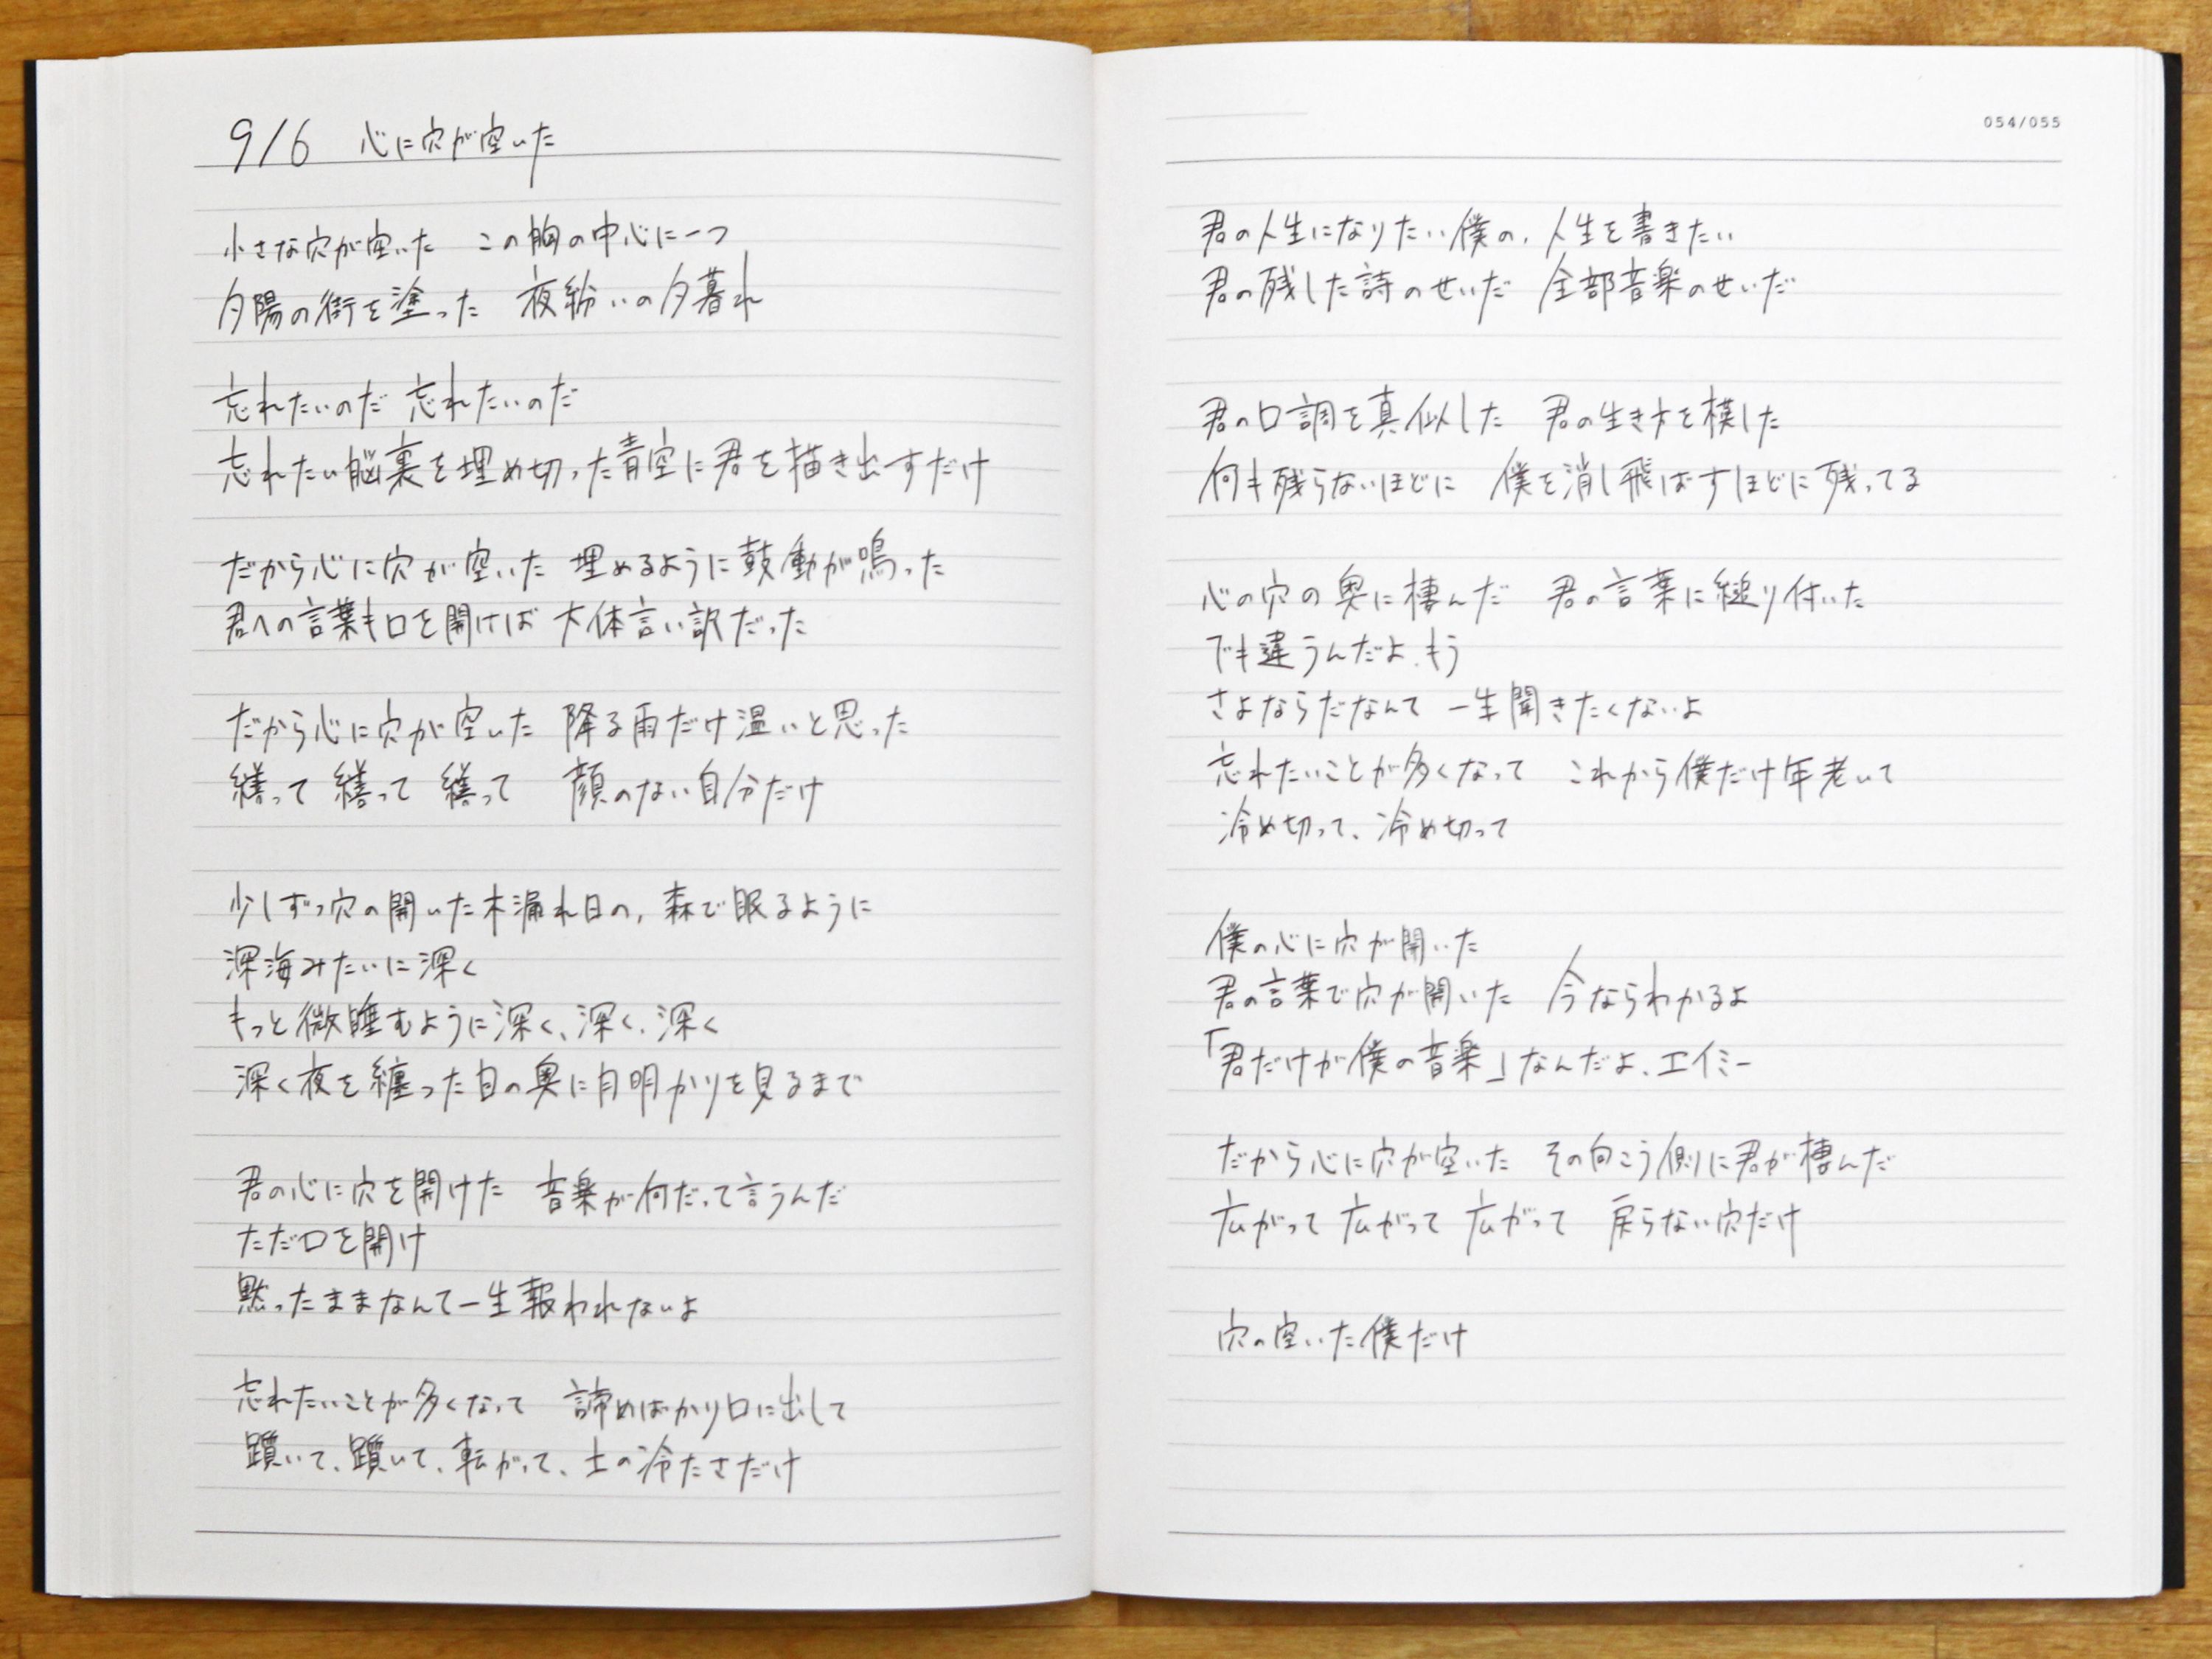 9/6 心に穴が空いた
小さな穴が空いた この胸の中心に一つ
夕陽の街を塗った 夜紛いの夕暮れ
忘れたいのだ 忘れたいのだ
忘れたい脳裏を埋め切った青空に君を描き出すだけ
だから心に穴が空いた 埋めるように鼓動が鳴った
君への言葉も口を開けば 大体言い訳だった
だから心に穴が空いた 降る雨だけ温いと思った
繕って 繕って 繕って 顔のない自分だけ
少しずつ穴の開いた木漏れ日の、森で眠るように
深海みたいに深く
もっと微睡むように深く、深く、深く
深く夜を纏った目の奥に月明かりを見るまで
君の心に穴を開けた 音楽が何だって言うんだ
ただ口を開け
黙ったままなんて一生報われないよ
忘れたいことが多くなって 諦めばかり口に出して
躓いて、躓いて、転がって、土の冷たさだけ
054/055
君の人生になりたい僕の、人生を書きたい
君の残した詩のせいだ 全部音楽のせいだ
君の口調を真似した 君の生き方を模した
何も残らないほどに 僕を消し飛ばすほどに残ってる
心の穴の奥に棲んだ 君の言葉に縋り付いた
でも違うんだよ、もう
さよならだなんて 一生聞きたくないよ
忘れたいことが多くなって これから僕だけ年老いて
冷め切って、冷め切って
僕の心に穴が開いた
君の言葉で穴が開いた 今ならわかるよ
「君だけが僕の音楽」なんだよ、エイミー
だから心に穴が空いた その向こう側に君が棲んだ
広がって 広がって 広がって 戻らない穴だけ
穴の空いた僕だけ